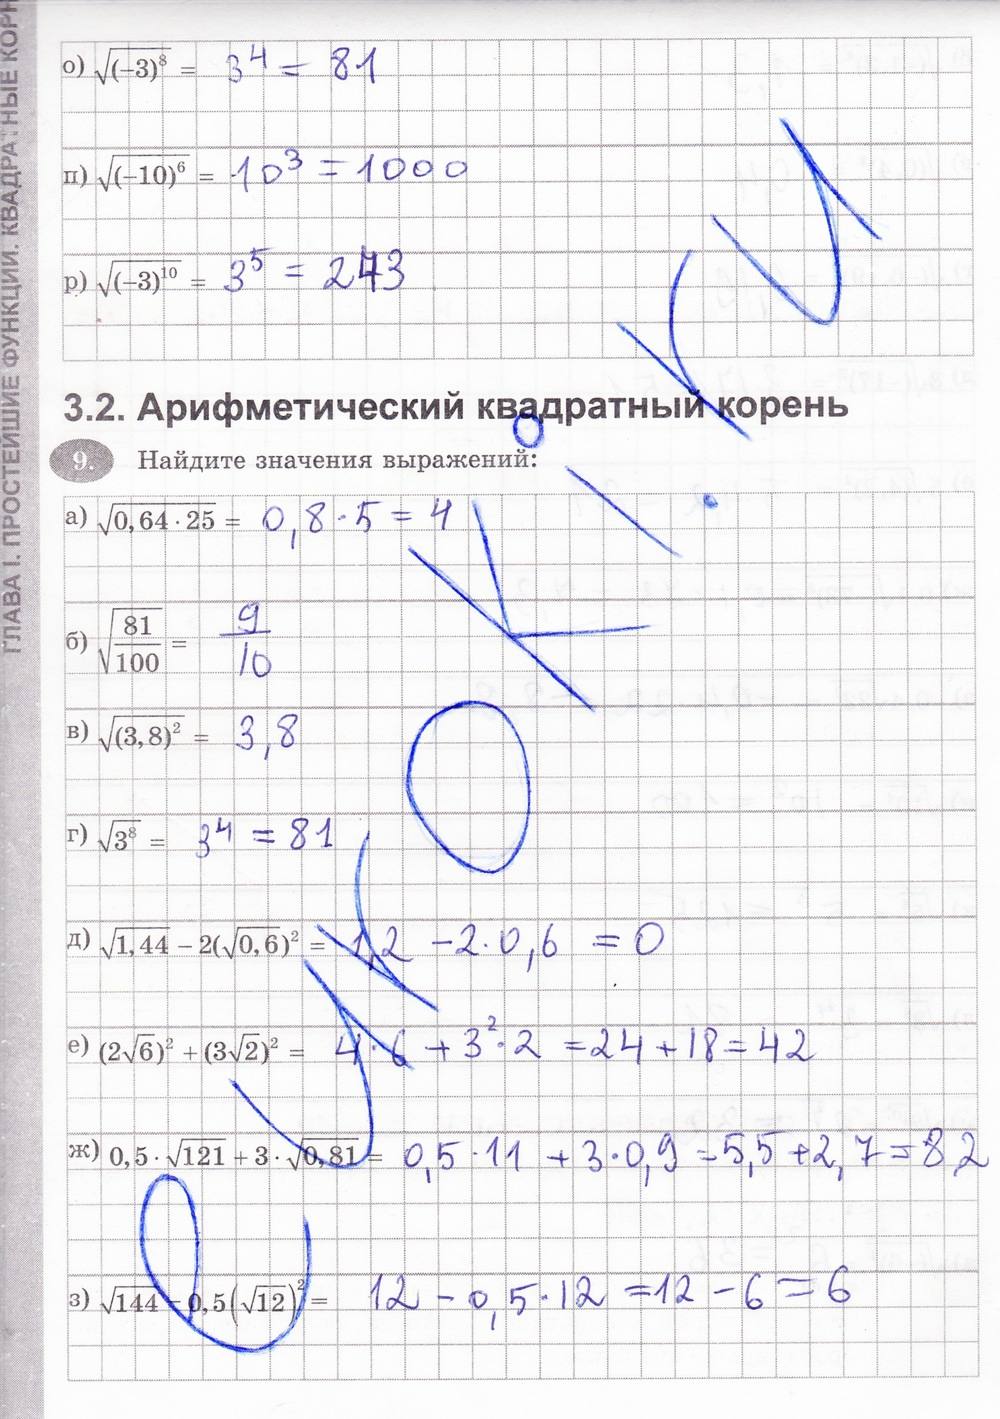 ГЛАВА I. ПРОСТЕЙШИЕ ФУНКЦИИ. КВАДРАТНЫЕ КОРН
о) √(−3)⁸ = 3⁴ = 81
п) √(−10)⁶ = 10³ = 1000
р) √(−3)¹⁰ = 3⁵ = 243
3.2. Арифметический квадратный корень
9. Найдите значения выражений:
а) √0,64 · 25 = 0,8 · 5 = 4
б) √81/100 = 9/10
в) √(3,8)² = 3,8
г) √3⁸ = 3⁴ = 81
д) √1,44 − 2(√0,6)² = 1,2 − 2 · 0,6 = 0
е) (2√6)² + (3√2)² = 4 · 6 + 3² · 2 = 24 + 18 = 42
ж) 0,5 · √121 + 3 · √0,81 = 0,5 · 11 + 3 · 0,9 = 5,5 + 2,7 = 8,2
з) √144 − 0,5(√12)² = 12 − 0,5 · 12 = 12 − 6 = 6